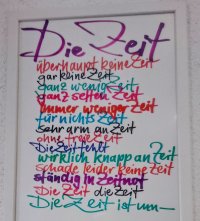 Die Zeit
überhaupt keine Zeit
gar keine Zeit
ganz wenig Zeit
ganz selten Zeit
immer weniger Zeit
für nichts Zeit
sehr arm an Zeit
ohne freie Zeit
Die Zeit fehlt
wirklich knapp an Zeit
schade leider keine Zeit
ständig in Zeitnot
Die Zeit die Zeit
Die Zeit ist um